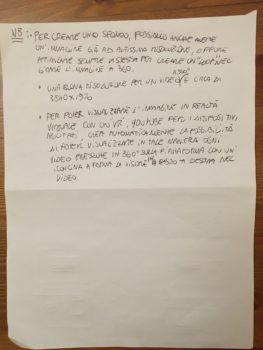 N.B.: - PER CREARE UNO SFONDO, POSSIAMO ANCHE AVERE
UN'IMMAGINE GIÀ AD ALTISSIMA RISOLUZIONE, OPPURE
SEMPRE STESSA PER CREARE UN
COME L'IMMAGINE A 360.
• UNA BUONA RISOLUZIONE PER UN VIDEO A 360° È CIRCA DI
3840X1920
• PER POTER VISUALIZZARE L'IMMAGINE IN REALTÀ
VIRTUALE CON UN VR, YOUTUBE PER I DISPOSITIVI
CREA AUTOMATICAMENTE LA POSSIBILITÀ
DI POTER VISUALIZZARE IN TALE MANIERA OGNI
VIDEO PRESENTE IN 360° SULLA PIATTAFORMA CON UN'
ICONCINA A FORMA DI VISORE IN BASSO A DESTRA NEL
VIDEO.